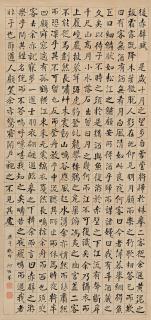 後赤壁賦 是歲十月之望步自雪堂將歸於臨皋二客從余過黃泥之
坂霜露既降木葉盡脫人影在地仰見明月顧而樂之行歌相答已而歎
曰有客無酒有酒無肴月白風清如此良夜何客曰今者薄暮舉網得魚
巨口細鱗狀似松江之鱸顧安所得酒乎歸而謀諸婦婦曰我有斗酒藏之
久矣以待子不時之需於是攜酒與魚復遊於赤壁之下江流有聲斷岸
千尺山高月小水落石出曾日月之幾何而江山不可復識矣余乃攝衣而
上履巉巖披蒙茸踞虎豹登虬龍攀棲鶻之危巢俯馮夷之幽宮蓋二客不
能從焉劃然長嘯草木震動山鳴谷應風起水涌余亦悄然而悲肅然而
恐凜乎其不可留也反而登舟放乎中流聽其所止而休焉時夜將半
四顧寂寥適有孤鶴橫江東來翅如車輪玄裳縞衣戛然長鳴掠余舟而西也須臾
客去余亦就睡夢一道士羽衣蹁躚過臨皋之下揖余而言曰赤壁之遊
樂乎問其姓名俛而不答嗚呼噫嘻我知之矣疇昔之夜飛鳴而過我者
非子也耶道士顧笑余亦驚寤開戶視之不見其處